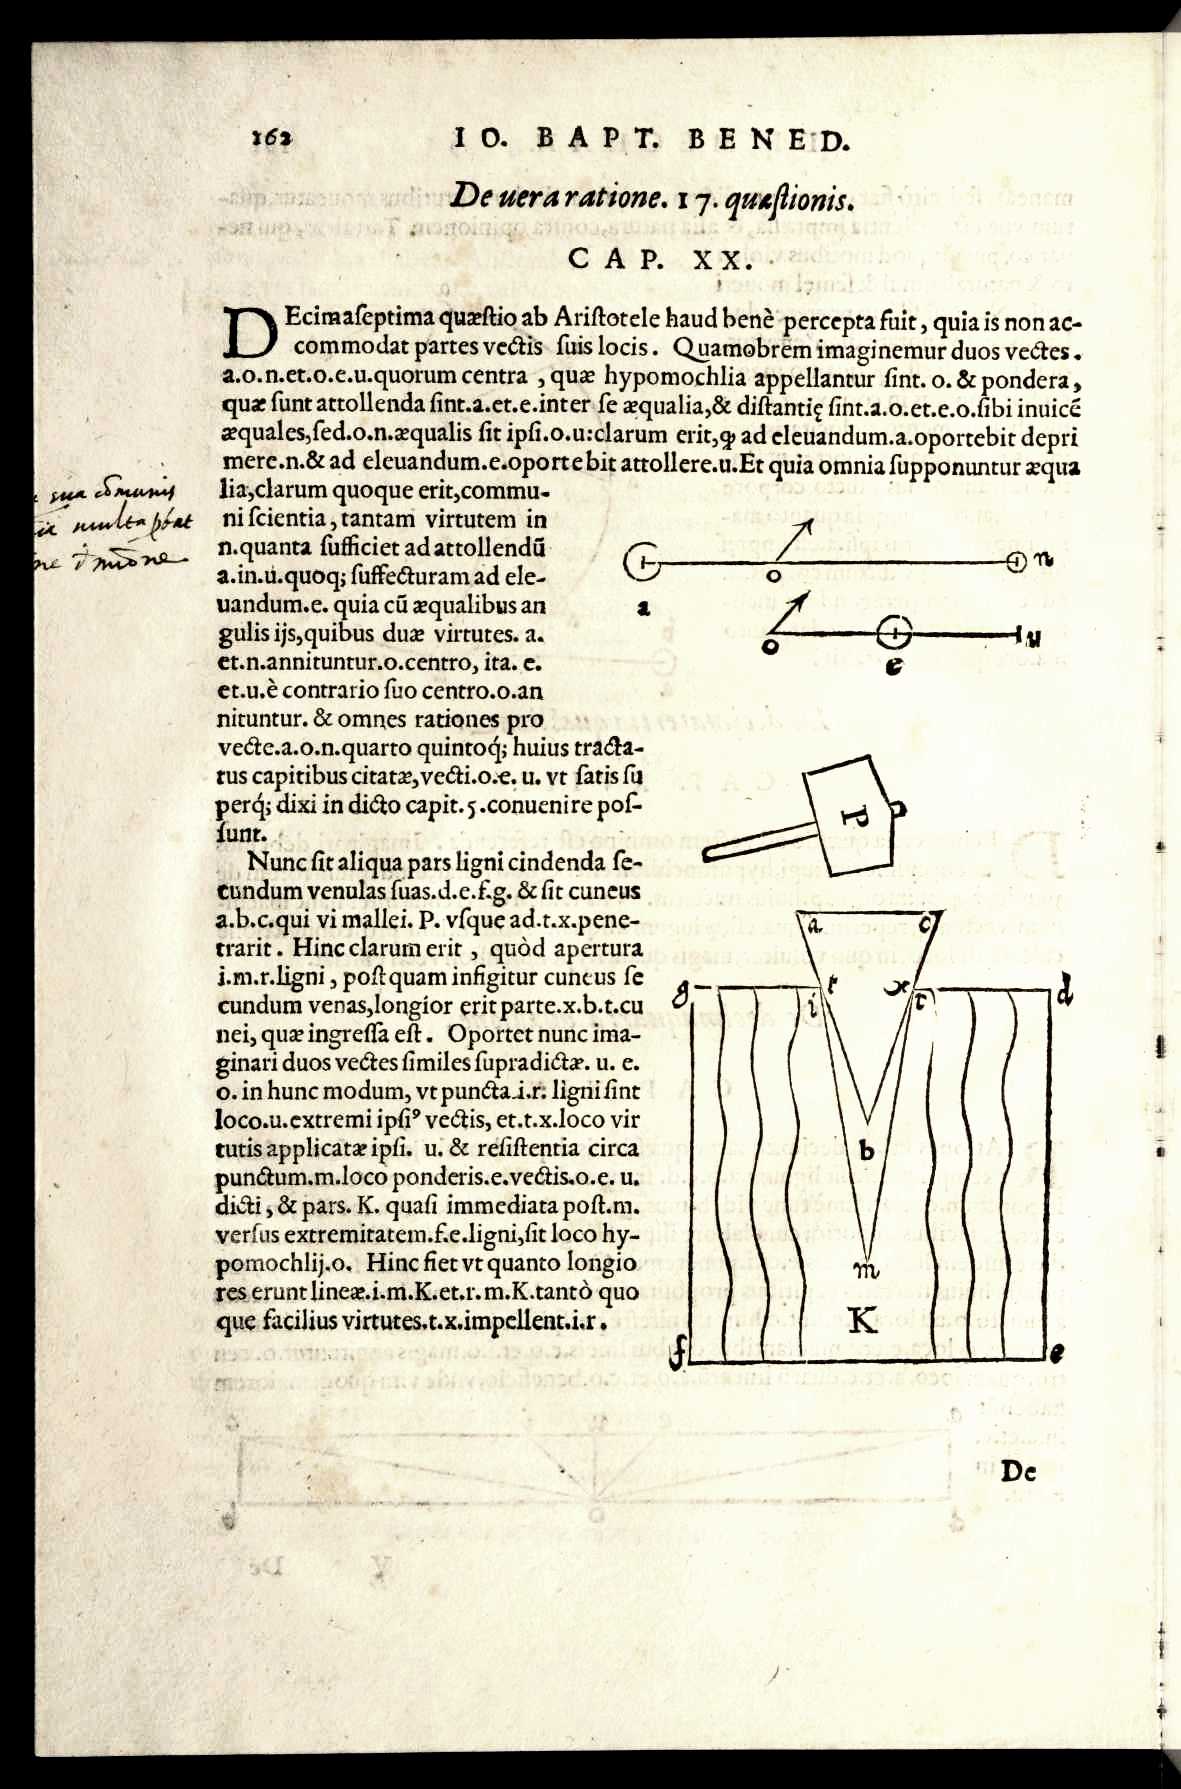 162
IO. BAPT. BENED.
De uera ratione. 17. quæſtionis.
CAP. XX.
DEcimaſeptima quæſtio ab Ariſtotele haud benè percepta fuit, quia is non ac-
commodat partes vectis ſuis locis. Quamobrem imaginemur duos vectes.
a.o.n.et.o.e.u.quorum centra, quæ hypomochlia appellantur ſint. o. & pondera,
quæ ſunt attollenda ſint.a.et.e.inter ſe æqualia,& diſtantię ſint.a.o.et.e.o.ſibi inuicē
æquales,ſed.o.n.æqualis ſit ipſi.o.u:clarum erit,ꝙ ad eleuandum.a.oportebit depri
mere.n.& ad eleuandum.e.oportebit attollere.u.Et quia omnia ſupponuntur æqua
lia,clarum quoque erit,commu-
ni ſcientia, tantam virtutem in
n.quanta ſufficiet ad attollendū
a.in.u.quoq; ſuffecturam ad ele-
uandum.e. quia cū æqualibus an
gulis ijs,quibus duæ virtutes. a.
et.n.annituntur.o.centro, ita. e.
et.u.è contrario ſuo centro.o.an
nituntur. & omnes rationes pro
vecte.a.o.n.quarto quintoq́; huius tracta-
tus capitibus citatæ,vecti.o.e. u. vt ſatis ſu
perq́; dixi in dicto capit.5.conuenire poſ-
ſunt.
Nunc ſit aliqua pars ligni cindenda ſe-
cundum venulas ſuas.d.e.f.g. & ſit cuneus
a.b.c.qui vi mallei. P. vſque ad.t.x.pene-
trarit. Hinc clarum erit, quòd apertura
i.m.r.ligni, poſt quam infigitur cuneus ſe
cundum venas,longior erit parte.x.b.t.cu
nei, quæ ingreſſa eſt. Oportet nunc ima-
ginari duos vectes ſimiles ſupradictæ. u. e.
o. in hunc modum, vt puncta.i.r. ligni ſint
loco.u.extremi ipſiꝰ vectis, et.t.x.loco vir
tutis applicatæ ipſi. u. & reſiſtentia circa
punctum.m.loco ponderis.e.vectis.o.e. u.
dicti, & pars. K. quaſi immediata poſt.m.
verſus extremitatem.f.e.ligni,ſit loco hy-
pomochlij.o. Hinc fiet vt quanto longio
res erunt lineæ.i.m.K.et.r.m.K.tantò quo
que facilius virtutes.t.x.impellent.i.r.
a o n
o e u
P
a c
g i t x r d
b
m
K
f e
De